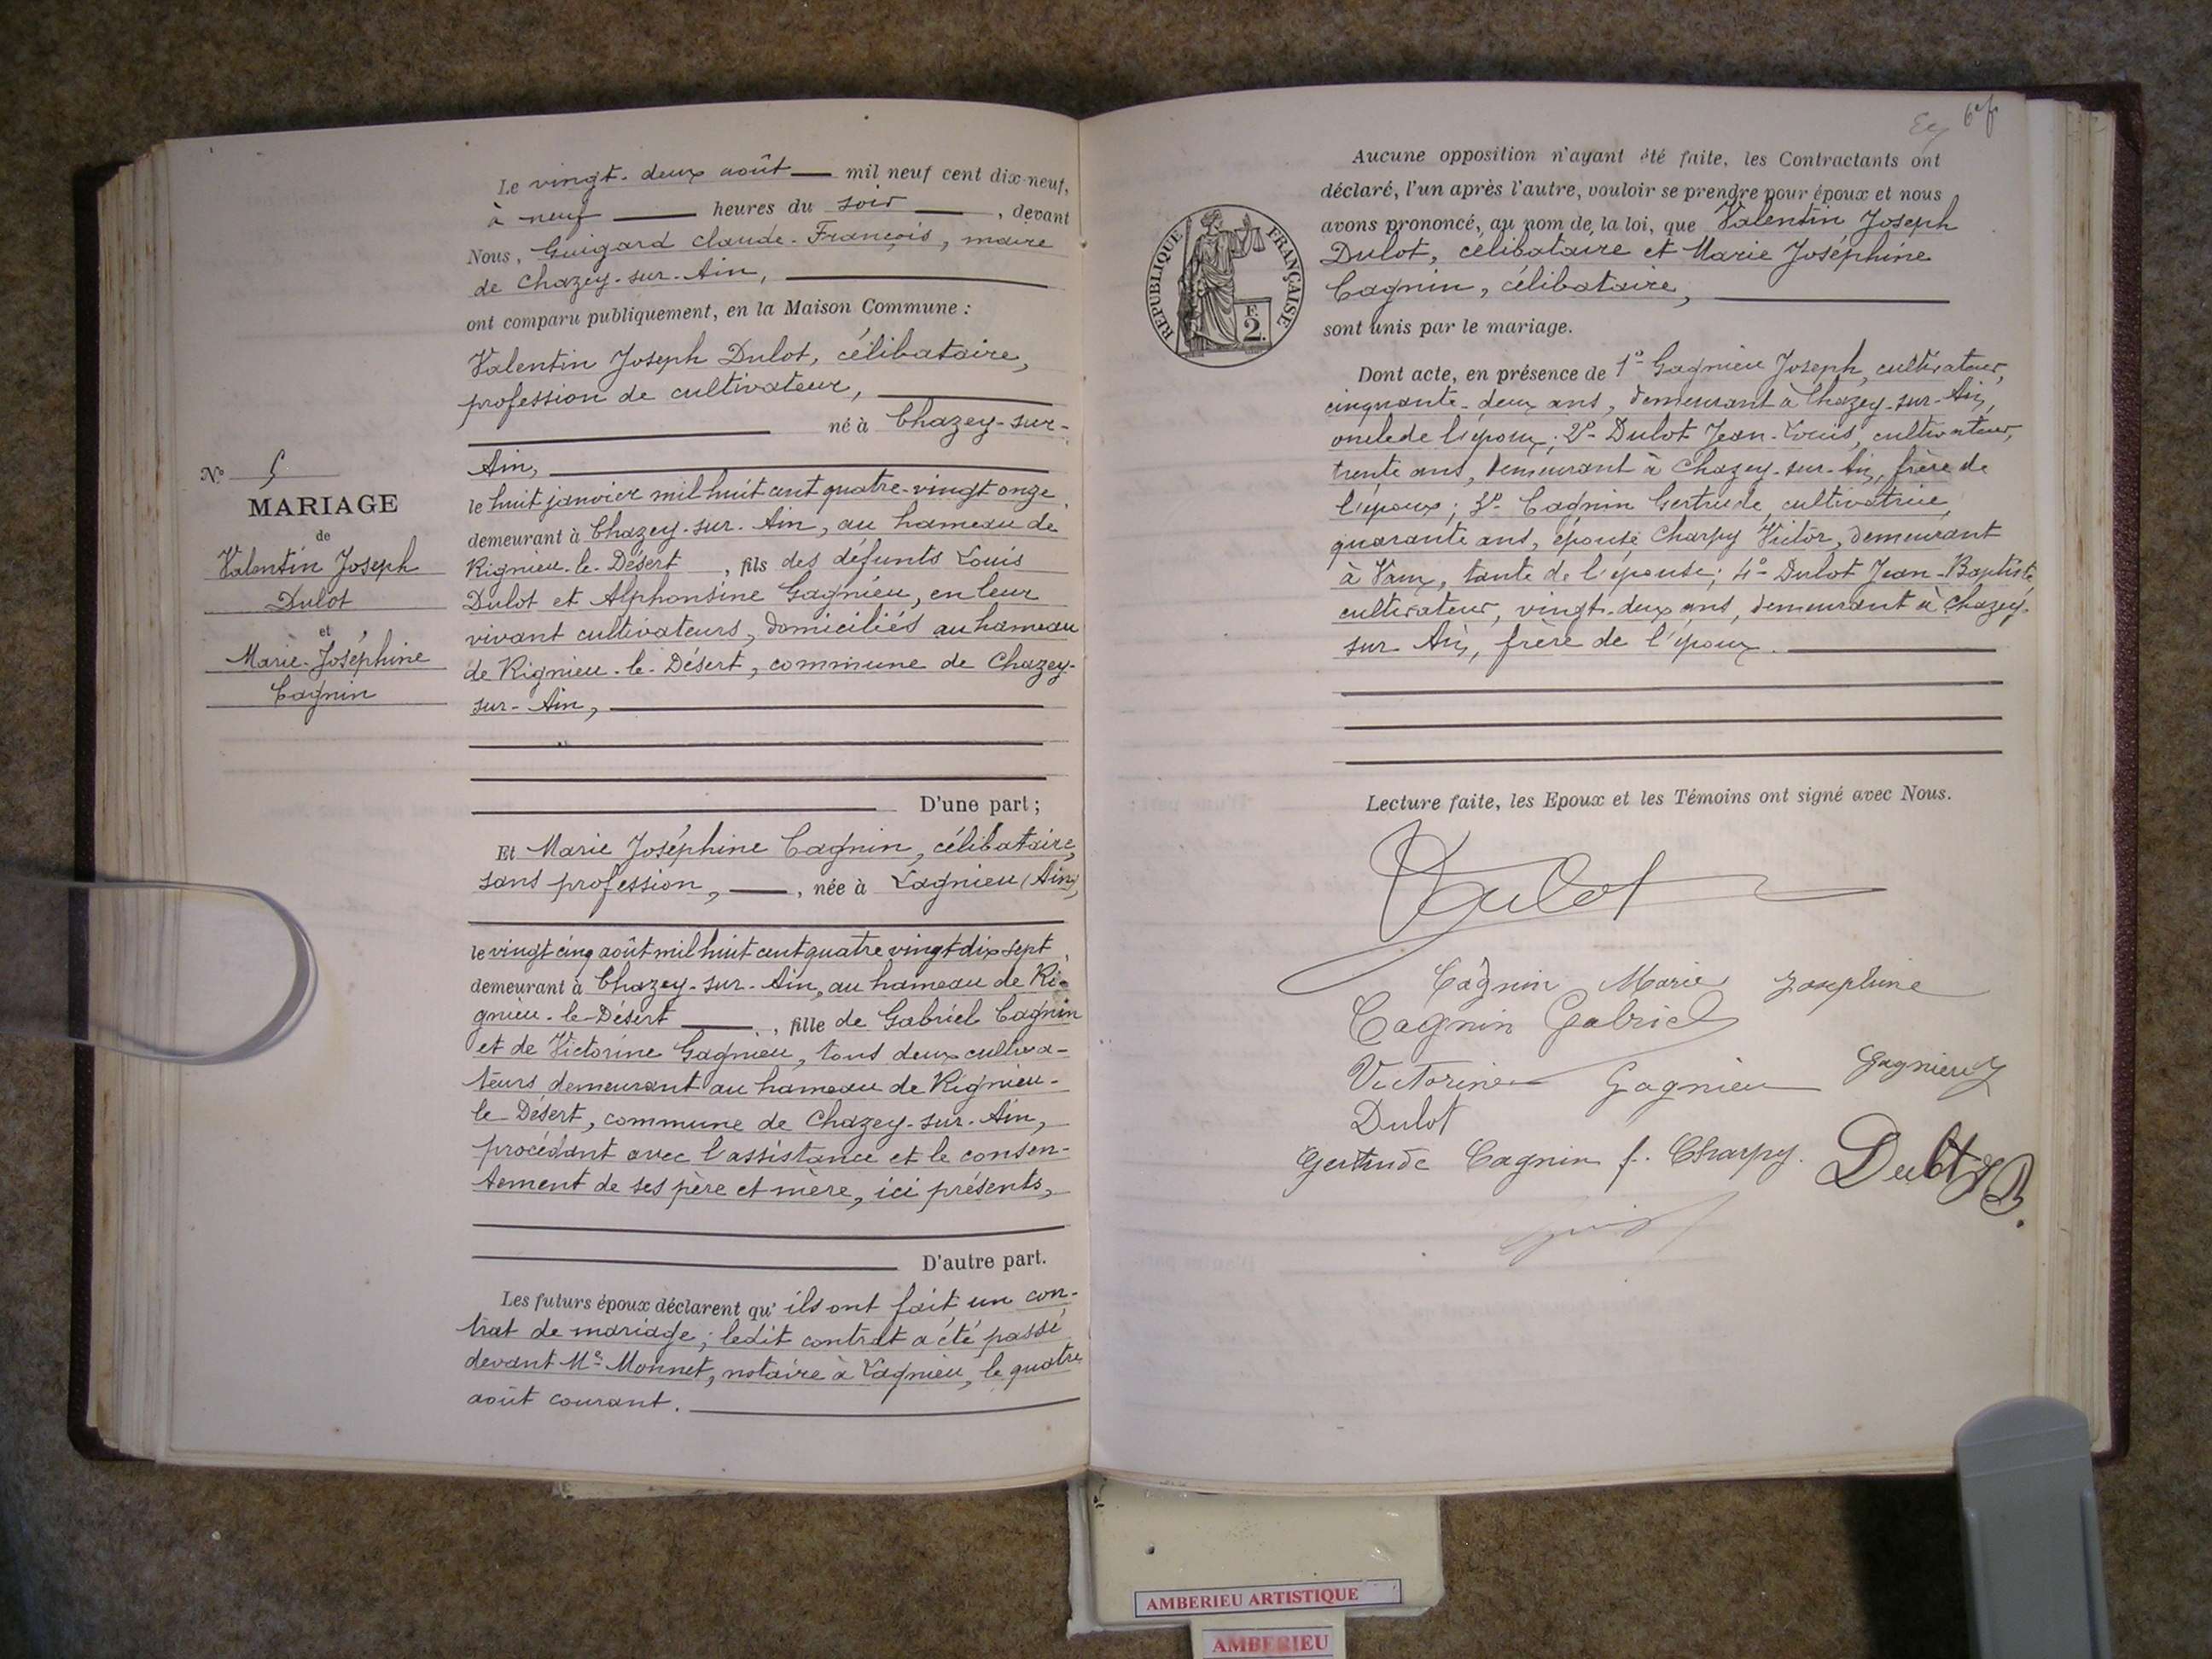 Le vingt-deux août mil neuf cent dix-neuf,
à neuf heures du soir, devant
Nous, Guigard Claude-François, maire
de Chazey-sur-Ain,
ont comparu publiquement, en la Maison Commune :
Valentin Joseph Dulot, célibataire,
profession de cultivateur,
né à Chazey-sur-
Ain,
le huit janvier mil huit cent quatre-vingt onze,
demeurant à Chazey-sur-Ain, au hameau de
Rignieu-le-Désert, fils des défunts Louis
Dulot et Alphonsine Gagnieu, en leur
vivant cultivateurs, domiciliés au hameau
de Rignieu-le-Désert, commune de Chazey-
sur-Ain,
D'une part ;
Et Marie Joséphine Cagnin, célibataire,
sans profession, née à Lagnieu (Ain),
le vingt cinq août mil huit cent quatre vingt dix sept,
demeurant à Chazey-sur-Ain, au hameau de Ri-
gnieu-le-Désert, fille de Gabriel Cagnin
et de Victorine Gagnieu, tous deux cultiva-
teurs demeurant au hameau de Rignieu-
le-Désert, commune de Chazey-sur-Ain,
procédant avec l'assistance et le consen-
tement de ses père et mère, ici présents,
D'autre part.
Les futurs époux déclarent qu'ils ont fait un con-
trat de mariage ; ledit contrat a été passé
devant Me Monnet, notaire à Lagnieu, le quatre
août courant.
N° 5
MARIAGE
de
Valentin Joseph
Dulot
et
Marie-Joséphine
Cagnin
6 f
Aucune opposition n'ayant été faite, les Contractants ont
déclaré, l'un après l'autre, vouloir se prendre pour époux et nous
avons prononcé, au nom de la loi, que Valentin Joseph
Dulot, célibataire et Marie Joséphine
Cagnin, célibataire,
sont unis par le mariage.
REPUBLIQUE FRANÇAISE
F.
2.
Dont acte, en présence de 1° Gagnieu Joseph, cultivateur,
cinquante-deux ans, demeurant à Chazey-sur-Ain,
oncle de l'époux ; 2° Dulot Jean-Louis, cultivateur,
trente ans, demeurant à Chazey-sur-Ain, frère de
l'époux ; 3° Cagnin Gertrude, cultivatrice,
quarante ans, épouse Charpy Victor, demeurant
à Vaux, tante de l'épouse ; 4° Dulot Jean-Baptiste,
cultivateur, vingt-deux ans, demeurant à Chazey-
sur Ain, frère de l'époux.
Lecture faite, les Epoux et les Témoins ont signé avec Nous.
Dulot
Cagnin Marie Josephine
Cagnin Gabriel
Victorine Gagnieu Gagnieu J
Dulot
Gertrude Cagnin f. Charpy. Dulot JB.
AMBERIEU ARTISTIQUE
AMBERIEU